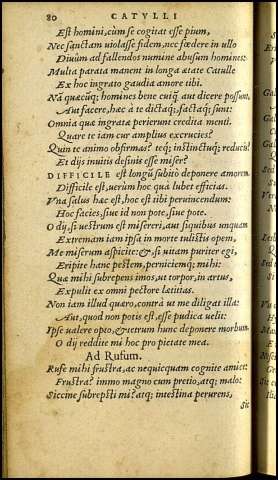 80 CATVLLI
Est homini, cum se cogitat esse pium,
Nec sanctam uiolasse fidem, nec fœdere in ullo
Diuûm ad fallendos numine abusum homines:
Multa parata manent in longa ætate Catulle
Ex hoc ingrato gaudia amore tibi.
Nã quæcũq; homines bene cuiq̃ aut dicere possunt,
Aut facere, hæc à te dictaq́; factaq́; sunt:
Omnia quæ ingratæ perierunt credita menti.
Quare te iam cur amplius excrucies?
Quin te animo obfirmas? teq́; instinctuq́; reducis?
Et dijs inuitis desinis esse miser?
DIFFICILE est longũ subitò deponere amorem.
Difficile est, uerùm hoc qua lubet efficias.
Vna salus hæc est, hoc est tibi peruincendum:
Hoc facies, siue id non pote, siue pote.
O dij, si uestrum est misereri, aut siquibus unquam
Extremam iam ipsa in morte tulistis opem,
Me miserum aspicite: &, si uitam puriter egi,
Eripite hanc pestem, perniciemq́; mihi:
Quæ mihi subrepens imos, ut torpor, in artus,
Expulit ex omni pectore lætitias.
Non iam illud quæro, contrà ut me diligat illa:
Aut, quod non potis est, esse pudica uelit:
Ipse ualere opto, & tetrum hunc deponere morbum.
O dij reddite mi hoc pro pietate mea.
Ad Rufum.
Rufe mihi frustra, ac nequicquam cognite amice:
Frustra? immo magno cum pretio, atq; malo:
Siccine subrepsti mi? atq; intestina perurens,
Sic